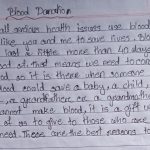 Blood Donation
all serious health issues use blood
like you and me to save lives. Blood
t last a little more than 40 days
out of. that means we need to con
od so it is there when someone
ood could save a baby, a child, a
er, a grandfather or a grandmother
annot make blood, it is a gift w
of us to give to those who are
need. These are the best reasons to